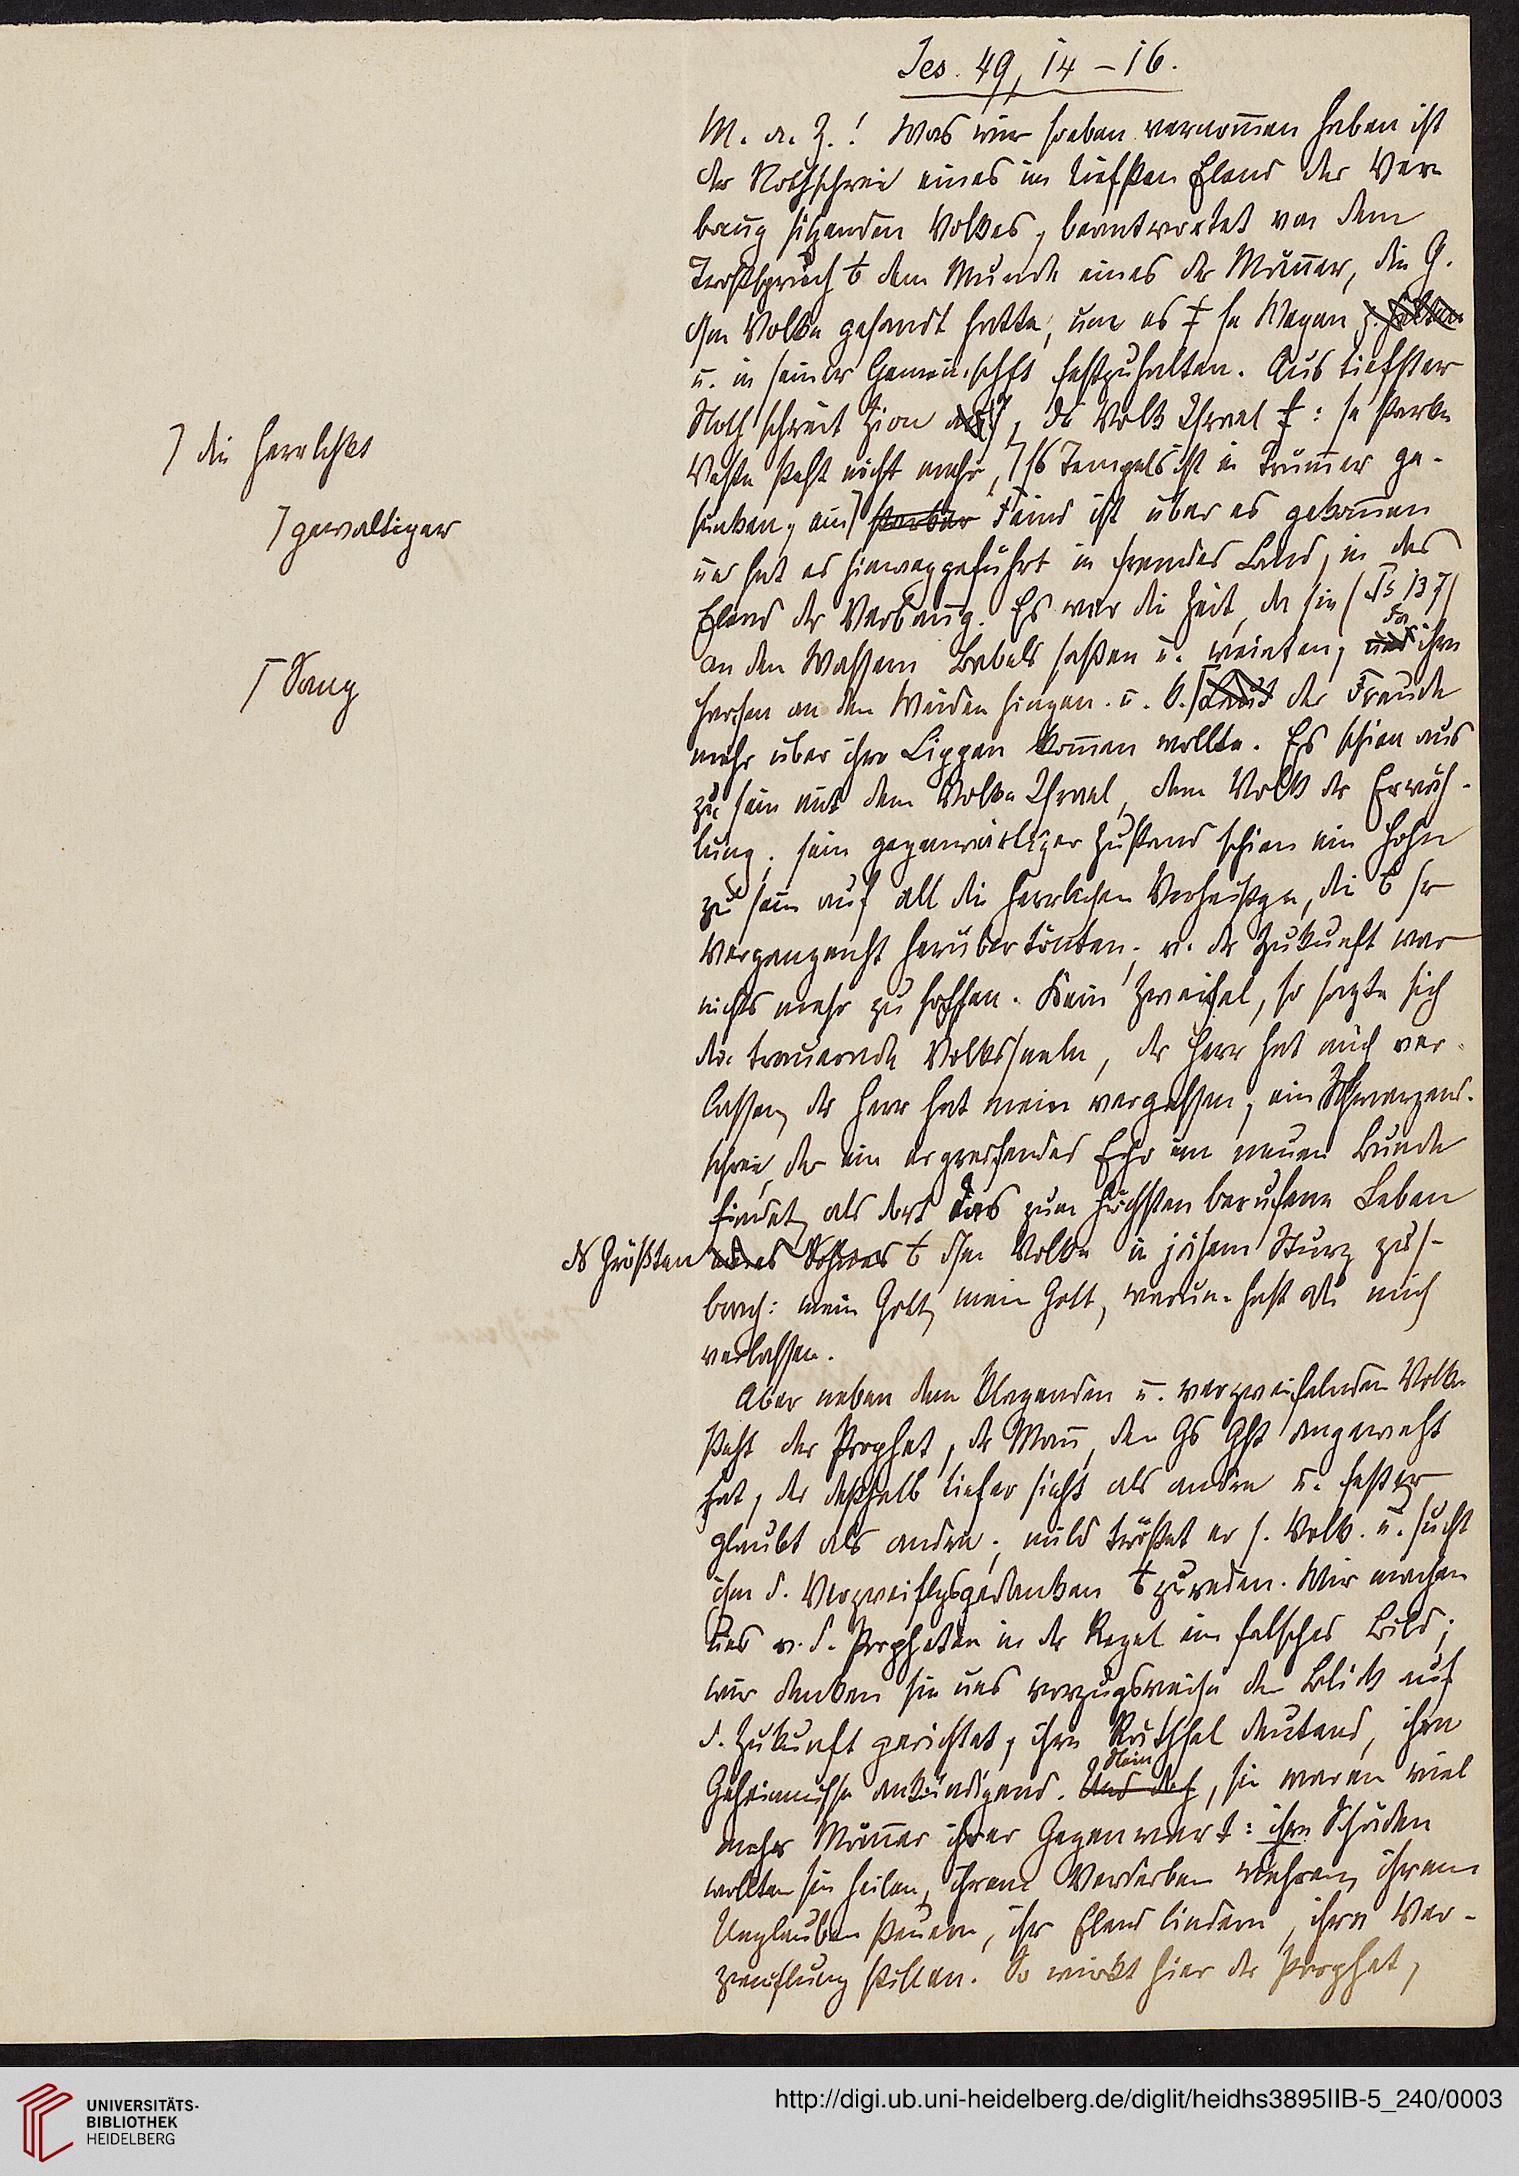 Jes. 49, 14–16.
M. a. Z.! Was wir soeben vernom̅en haben ist
der Nothschrei eines im tiefsten Elend der Ver-
ban̅g sitzenden Volkes, beantwortet von dem
Trostspruch t dem Munde eines der Män̅er, die G.
dem Volke gesandt hatte, um es Wegen
u. in seiner Gemeinschft festzuhalten. Aus tiefster
Noth schreit Zion, ds Volk Israel: se starke
Veste steht nicht mehr, ⌉ s Tempels ist in Trüm̅er ge-
⌉ die Herrlichkt
sunken, ein ⌉ starker Feind ist über es gekom̅en
⌉ gewaltiger
un hat es hinweggeführt in fremdes Land, in das
Elend der Verban̅g. Es war die Zeit, da sie (Ps 137)
an den Wassern Babels saßen u. weinten, und ihre
Harfen an den Weiden hingen. u. k. ⌈ Laut der Freude
⌈ Sang
mehr über ihre Lippen kom̅en wollte. Es schien aus
zu sein mit dem Volke Israel, dem Volk der Erwäh-
lung; sein gegenwärtiger Zustand schien ein Hohn
zu sein auf all die herrlichen Verheißgen, die sr
Vergangenht herübertönten; v. der Zukunft war
nichts mehr zu hoffen. Kein Zweifel, so sagte sich
die trauernde Volksseele, der Herr hat mich ver-
lassen, der Herr hat mein vergessen, ein Schmerzens-
schrei, der ein ergreifendes Echo im neuen Bunde
findet, als dort das zum höchsten berufene Leben
ds Größten eines Sohnes t dem Volke in jähem Sturz zus-
brach: mein Gott, mein Gott, warum hast du mich
verlassen.
Aber neben dem klagenden u. verzweifelnden Volke
steht der Prophet, der Man̅, den Gs Gst angeweht
hat, der deßhalb tiefer sieht als andre u. fester
glaubt als andre; mild tröstet er s. Volk u. sucht
ihm d. Verzweiflgsgedanken zureden. Wir machen
uns v. d. Propheten in der Regel ein falsches Bild;
wir denken sie uns vorzugsweise den Blick auf
d. Zukunft gerichtet, ihre Räthsel deutend, ihre
Geheimnisse ankündigend. Und doch Nein, sie waren viel
mehr Män̅er ihrer Gegenwart: ihre Schäden
wollten sie heilen, ihrem Verderben wehren, ihrem
Unglauben steuern, ihr Elend lindern, ihre Ver-
zweiflung stillen. So wirkt hier der Prophet,
UNIVERSITÄTS-
BIBLIOTHEK
HEIDELBERG
http://digi.ub.uni-heidelberg.de/diglit/heidhs3895IIB-5_240/0003